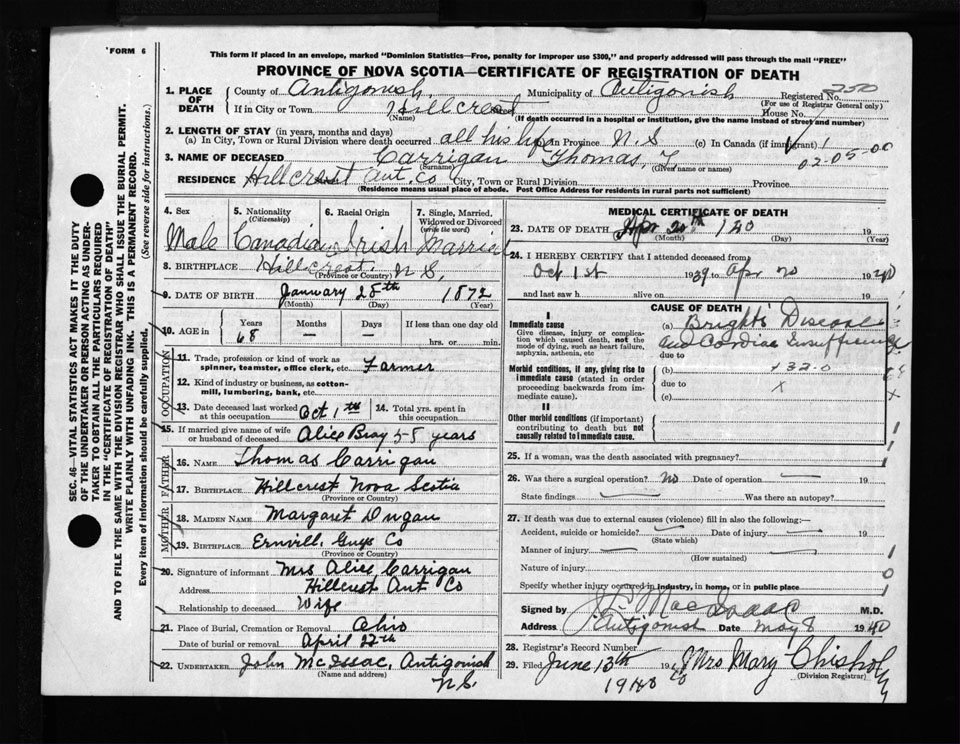 FORM 6
This form if placed in an envelope, marked "Dominion Statistics—Free, penalty for improper use $300," and properly addressed will pass through the mail "FREE"
PROVINCE OF NOVA SCOTIA—CERTIFICATE OF REGISTRATION OF DEATH
1. PLACE OF DEATH County of Antigonish Municipality of Antigonish Registered No. 250
(For use of Registrar General only)
If in City or Town Hillcrest Street House No.
(Name) (If death occurred in a hospital or institution, give the name instead of street and number)
2. LENGTH OF STAY (in years, months and days)
(a) In City, Town or Rural Division where death occurred all his life In Province N.S (c) In Canada (if immigrant) 1
02-05-00
3. NAME OF DECEASED Carrigan Thomas,
(Surname) (Given name or names)
RESIDENCE Hillcrest Ant. Co City, Town or Rural Division Province
(Residence means usual place of abode. Post Office Address for residents in rural parts not sufficient)
4. Sex 5. Nationality (Citizenship) 6. Racial Origin 7. Single, Married, Widowed or Divorced (write the word)
Male Canadian Irish Married
8. BIRTHPLACE Hillcrest. N.S,
(Province or Country)
9. DATE OF BIRTH January 28th 1872
(Month) (Day) (Year)
10. AGE in Years Months Days If less than one day old
68 — — hrs. or min.
OCCUPATION
11. Trade, profession or kind of work as spinner, teamster, office clerk, etc. Farmer
12. Kind of industry or business, as cotton-mill, lumbering, bank, etc.
13. Date deceased last worked at this occupation Oct 1th 14. Total yrs. spent in this occupation
15. If married give name of wife or husband of deceased Alice Bray 58 years
FATHER
16. NAME Thomas Carrigan
17. BIRTHPLACE Hillcrest Nova Scotia
(Province or Country)
MOTHER
18. MAIDEN NAME Margaret Dugan
19. BIRTHPLACE Ernvill. Guys Co
(Province or Country)
20. Signature of informant Mrs Alice Carrigan
Address Hillcrest Ant Co
Relationship to deceased Wife
21. Place of Burial, Cremation or Removal Ohio
Date of burial or removal April 22th
22. UNDERTAKER John McIssac, Antigonish
(Name and address) N.S.
MEDICAL CERTIFICATE OF DEATH
23. DATE OF DEATH Apr 20th 19
(Month) (Day) (Year)
24. I HEREBY CERTIFY that I attended deceased from
Oct 1st 1939 to Apr 20 1940
and last saw h alive on 19
CAUSE OF DEATH
I
Immediate cause (a) Brights Disease
Give disease, injury or complication which caused death, not the mode of dying, such as heart failure, asphyxia, asthenia, etc
and Cardiac
due to
Morbid conditions, if any, giving rise to immediate cause (stated in order proceeding backwards from immediate cause).
(b)
due to X
(c)
II
Other morbid conditions (if important) contributing to death but not causally related to immediate cause.
25. If a woman, was the death associated with pregnancy?
26. Was there a surgical operation? No Date of operation — 19
State findings — Was there an autopsy?
27. If death was due to external causes (violence) fill in also the following:—
Accident, suicide or homicide? — Date of injury — 19
(State which)
Manner of injury — —
(How sustained)
Nature of injury —
Specify whether injury occurred in industry, in home, or in public place
Signed by MacIsaac M.D.
Address Antigonish Date May 8 1940
28. Registrar's Record Number
29. Filed June 13th 19 40 Mrs Mary Chisholm
1940 (Division Registrar)
SEC. 46—VITAL STATISTICS ACT MAKES IT THE DUTY
OF THE UNDERTAKER OR PERSON ACTING AS UNDER-
TAKER TO OBTAIN ALL THE PARTICULARS REQUIRED
IN THE "CERTIFICATE OF REGISTRATION OF DEATH"
AND TO FILE THE SAME WITH THE DIVISION REGISTRAR WHO SHALL ISSUE THE BURIAL PERMIT.
WRITE PLAINLY WITH UNFADING INK. THIS IS A PERMANENT RECORD.
Every item of information should be carefully supplied. (See reverse side for instructions.)